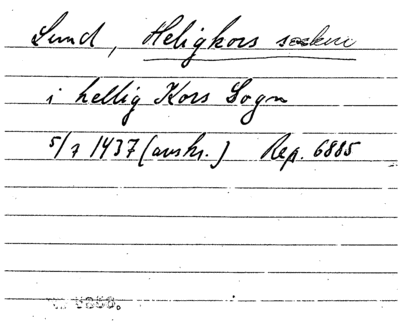 Lund, Heligkors socken
i hellig Kors Sogn
5/7 1437 (avskr.) Rep. 6885